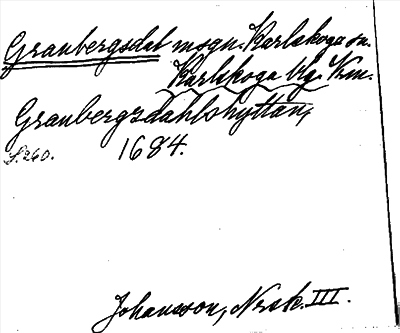 Granbergsdal msgn. Karlskoga sn.
Karlskoga bg. Krm.
Granbergsdahlshyttan,
S. 260. 1684.
Johansson, Norsk. III.